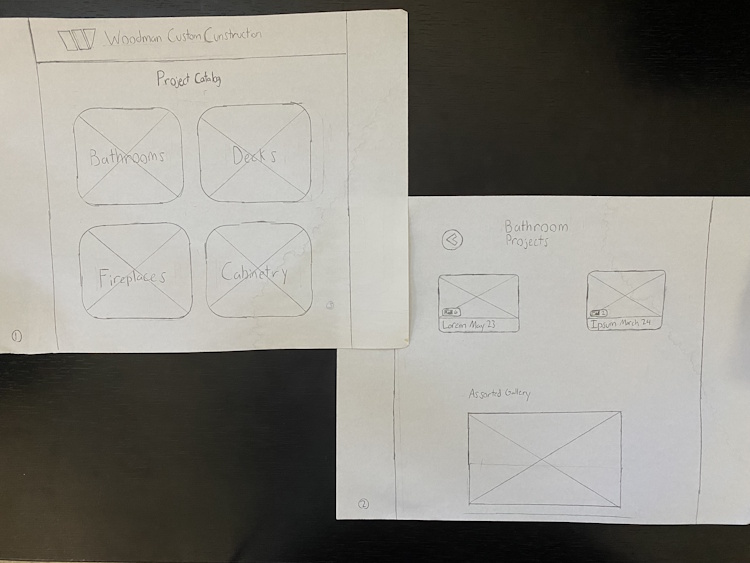 Woodman Custom Construction
Project Catalog
Bathrooms
Decks
Fireplaces
Cabinetry
1
Bathroom
Projects
Lorem May 23
Ipsum March 24
Assorted Gallery
2